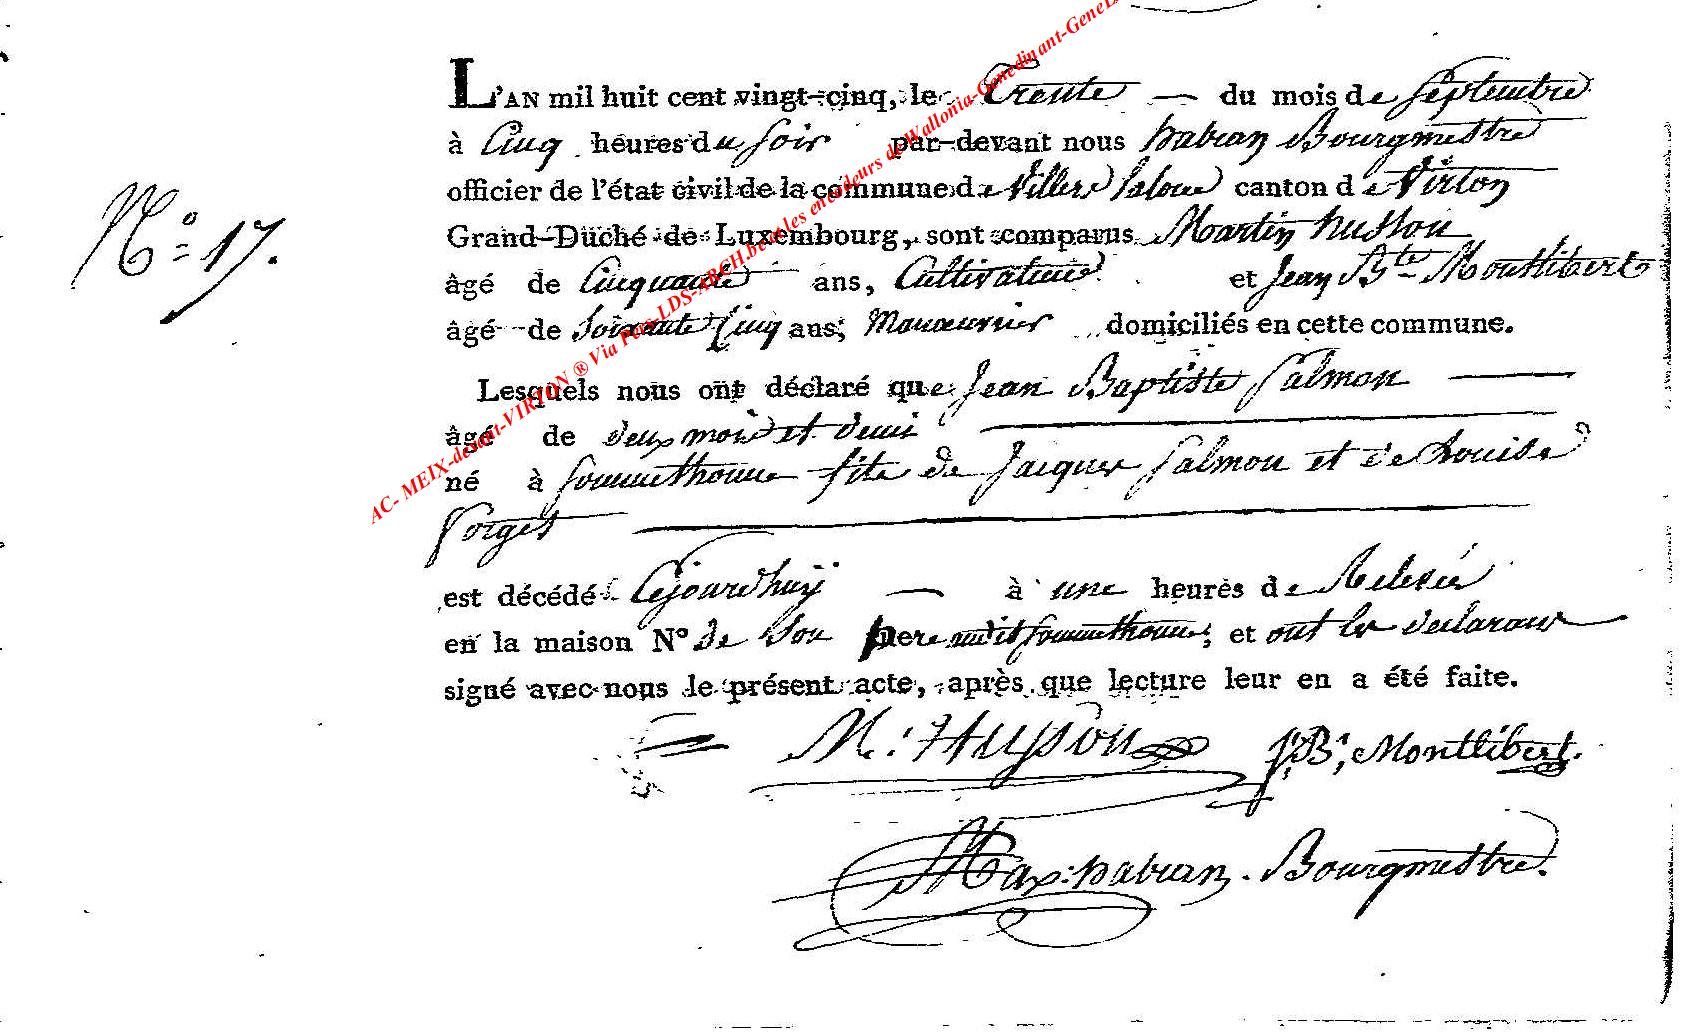 L'AN mil huit cent vingt-cinq, le Trente — du mois de Septembre
à Cinq heures du soir par-devant nous habran Bourgmestre
officier de l'état civil de la commune de Villers laloue canton de Virton
Grand-Duché de Luxembourg, sont comparus Martin husson
N° 17.
âgé de Cinquante ans, Cultivateur et Jean Bte Montlibert
âgé de soixante Cinq ans, Manoeuvrier domiciliés en cette commune.
Lesquels nous ont déclaré que Jean Baptiste Salmon —
âgé de deux mois et demi —
né à Sommethonne fils de Jacques Salmon et de Louise
Forget —
est décédé Cejourdhuy — à une heures de Relevée
en la maison N° de son pere audit Sommethonne, et ont les declarans
signé avec nous le présent acte, après que lecture leur en a été faite.
M: Husson J, B, Montlibert.
Max: habran. Bourgmestre.
AC- MEIX-devant-VIRTON ® Via Pers-LDS-ARCH.be